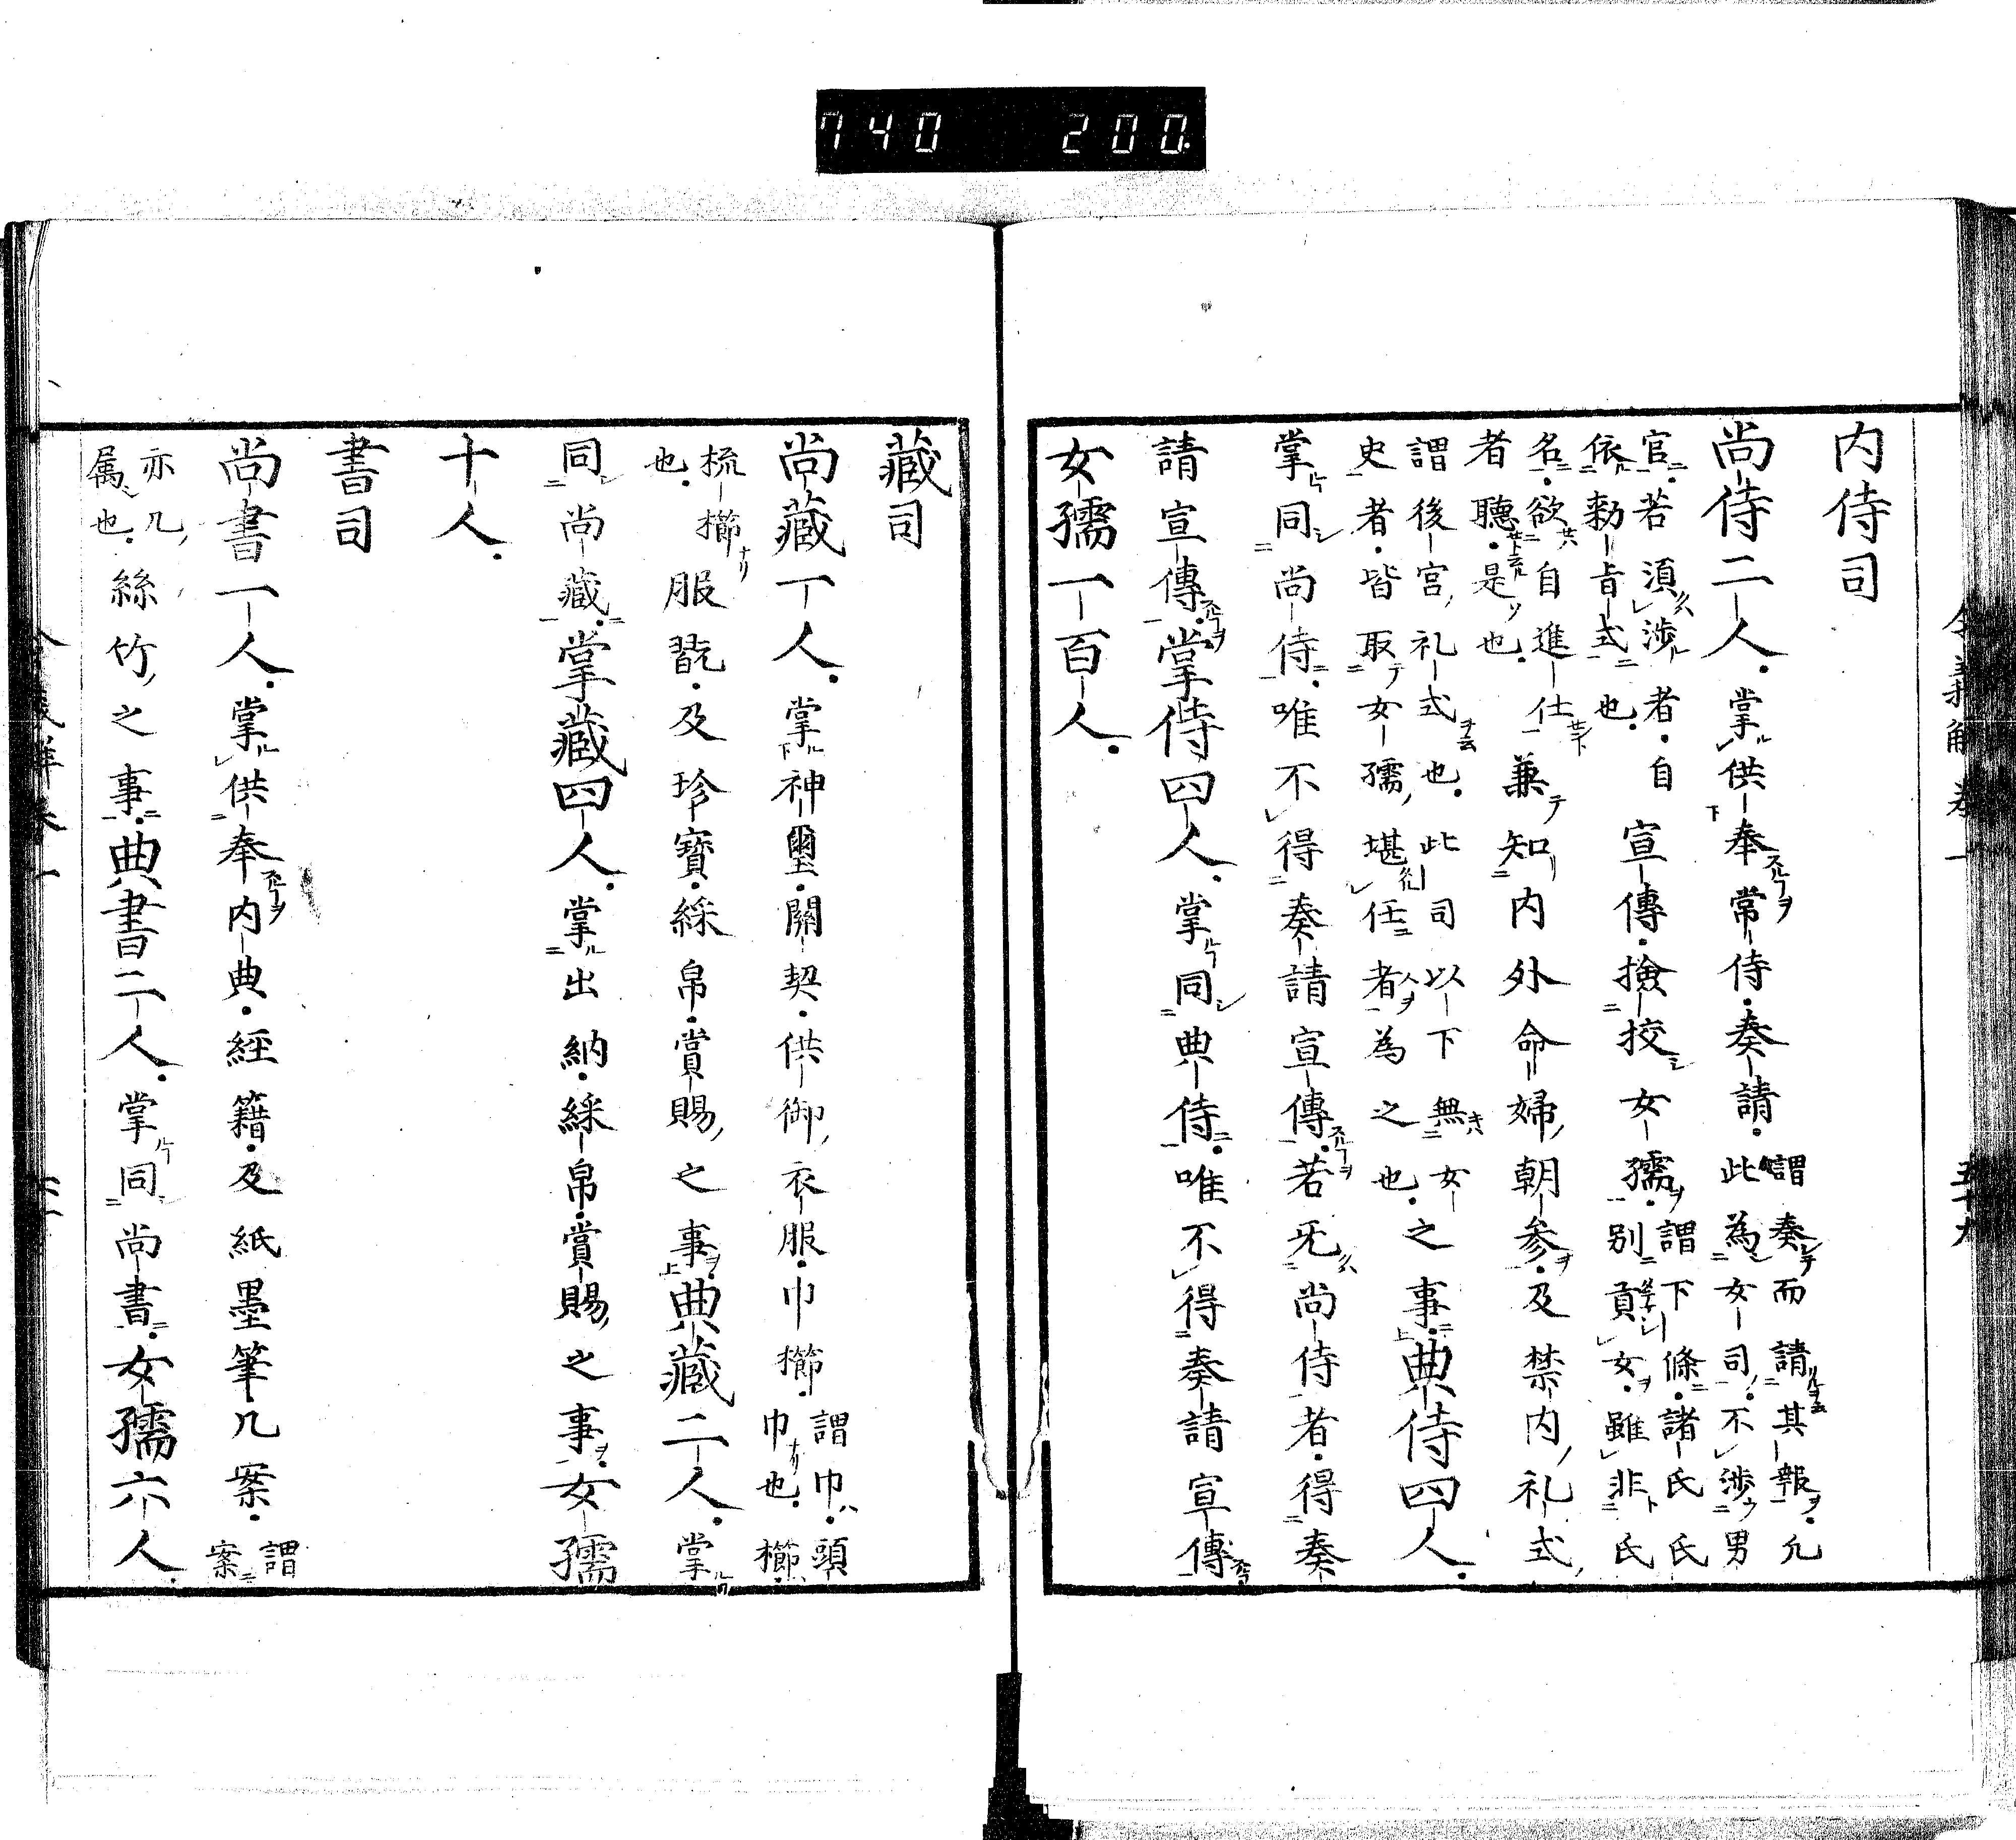 740 200
内侍司
尚侍二人。掌供奉常侍。奏請。謂奏而請其報。允
此為女司。不渉男
官。若須渉者。自
依勅旨式也。宣傳。撿挍女孺。謂下條。諸氏氏
別貢女。雖非氏
名。欲自進仕
者聽。是也。兼知内外命婦朝参。及禁内礼式
謂後宮礼式也。此司以下無女
史者。皆取女孺堪任者為之也。之事。典侍四人。
掌同尚侍。唯不得奏請宣傳。若无尚侍者。得奏
請宣傳。掌侍四人。掌同典侍。唯不得奏請宣傳
女孺一百人。
藏司
尚藏一人。掌神璽。關契。供御衣服。巾櫛。謂巾。頭
巾也。櫛。
梳櫛
也。服翫。及珍寶。綵帛。賞賜之事。典藏二人。掌
同尚藏。掌藏四人。掌出納。綵帛。賞賜之事。女孺
十人。
書司
尚書一人。掌供奉内典。經籍。及紙墨筆几案。謂
案
亦几
属也。絲竹之事。典書二人。掌同尚書。女孺六人。